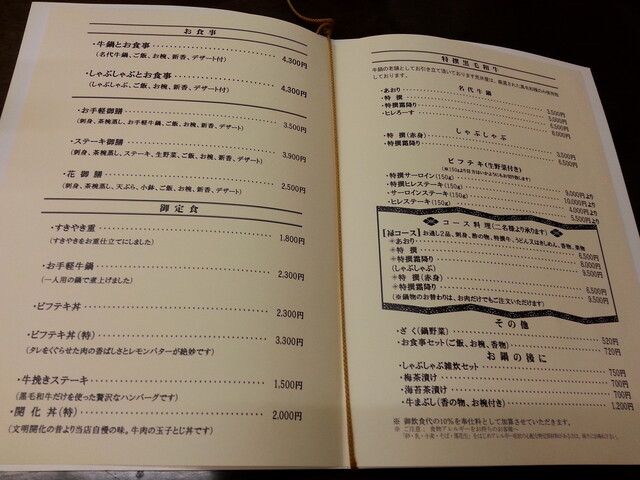 お食事
・牛鍋とお食事 4,300円
(名代牛鍋、ご飯、お椀、新香、デザート付)
・しゃぶしゃぶとお食事 4,300円
(しゃぶしゃぶ、ご飯、お椀、新香、デザート付)
・お手軽御膳 3,500円
(刺身、茶椀蒸し、お手軽牛鍋、ご飯、お椀、新香、デザート)
・ステーキ御膳 3,900円
(刺身、茶椀蒸し、ステーキ、生野菜、ご飯、お椀、新香、デザート)
・花御膳 2,500円
(刺身、茶椀蒸し、天ぷら、小鉢、ご飯、お椀、新香、デザート)
御定食
・すきやき重 1,800円
(すきやきをお重仕立にしました)
・お手軽牛鍋 2,300円
(一人用の鍋で煮上げました)
・ビフテキ丼 2,300円
・ビフテキ丼(特) 3,300円
(タレをくぐらせた肉の香ばしさとレモンバターが絶妙です)
・牛挽きステーキ 1,500円
(黒毛和牛だけを使った贅沢なハンバーグです)
・開化丼(特) 2,000円
(文明開化の昔より当店自慢の味。牛肉の玉子とじ丼です)
特撰黒毛和牛
名代牛鍋
・あおり 3,500円
・特撰 5,000円
・特撰霜降り 6,500円
・ヒレろーす 8,000円
しゃぶしゃぶ
・特撰(赤身) 3,500円
・特撰霜降り 6,500円
ビフテキ(生野菜付)
・特撰サーロイン(150g) 9,000円より
・特撰ヒレステーキ(150g) 10,000円より
・サーロインステーキ(150g) 4,000円より
・ヒレステーキ(150g) 5,500円より
コース料理(二名様より承ります)
【緑コース】お通し2品、刺身、酢の物、特撰牛、うどん又はきしめん、香物、果物
＊あおり 6,500円
＊特撰 8,000円
＊特撰霜降り 9,500円
(しゃぶしゃぶ)
＊特撰(赤身) 6,500円
＊特撰霜降り 9,500円
(※鍋物のお替わりは、お肉だけでもご注文いただけます)
その他
・ざく(鍋野菜) 520円
・お食事セット(ご飯、お椀、香物) 720円
お鍋の後に
・しゃぶしゃぶ雑炊セット 750円
・梅茶漬け 700円
・海苔茶漬け 700円
・牛まぶし(香の物、お椀付き) 1,200円
※ 御飲食代の10%を奉仕料として加算させていただきます。
※ ご注意；食物アレルギーをお持ちのお客様へ